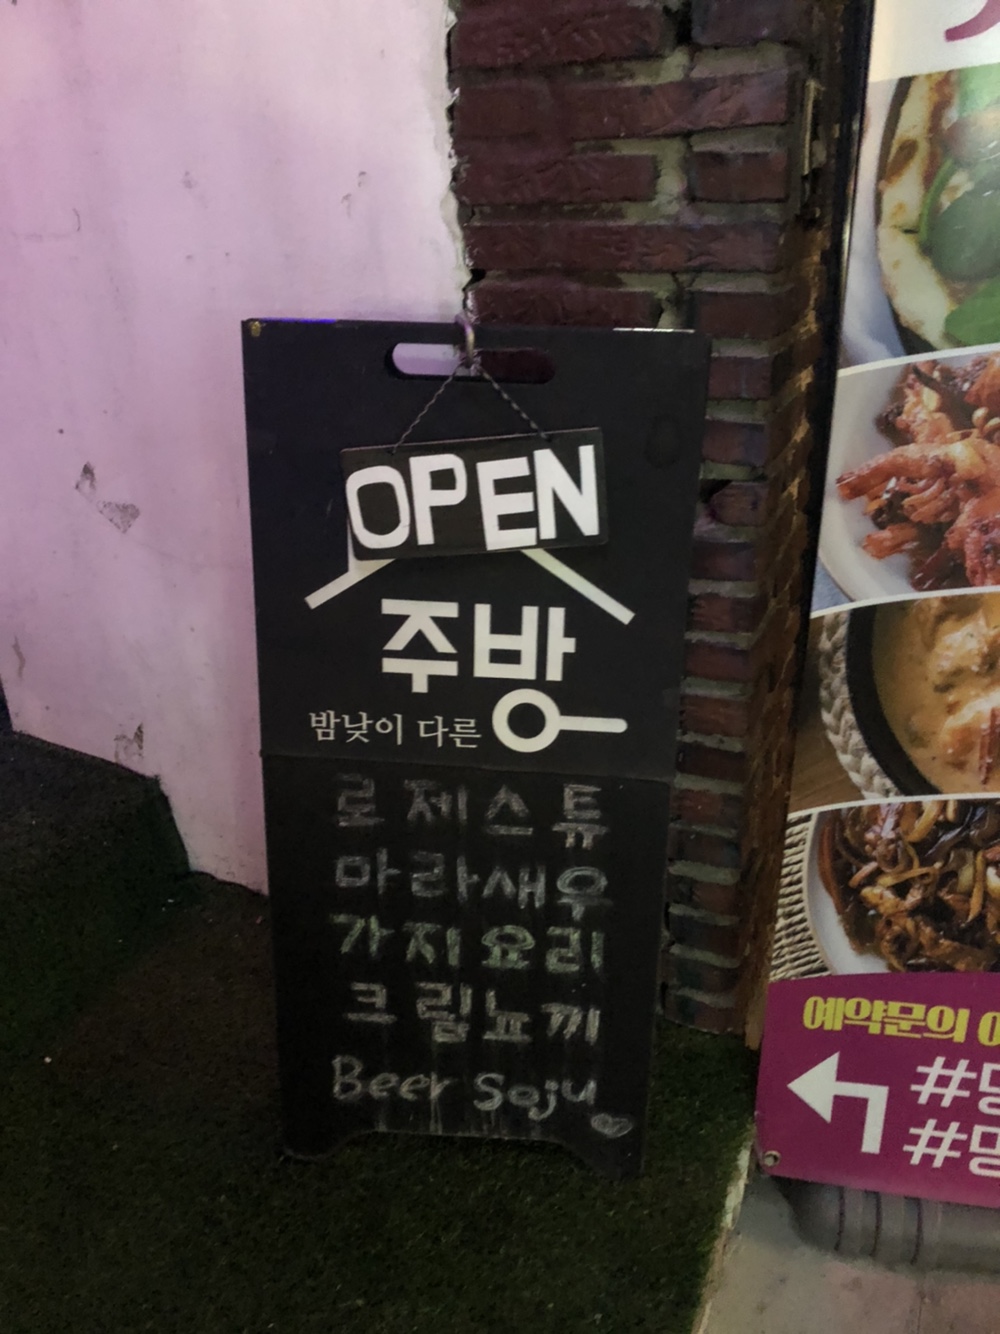 OPEN
주방
밤낮이 다른
로제스튜
마라새우
가지요리
크림뇨끼
Beer Soju
예약문의
#
#